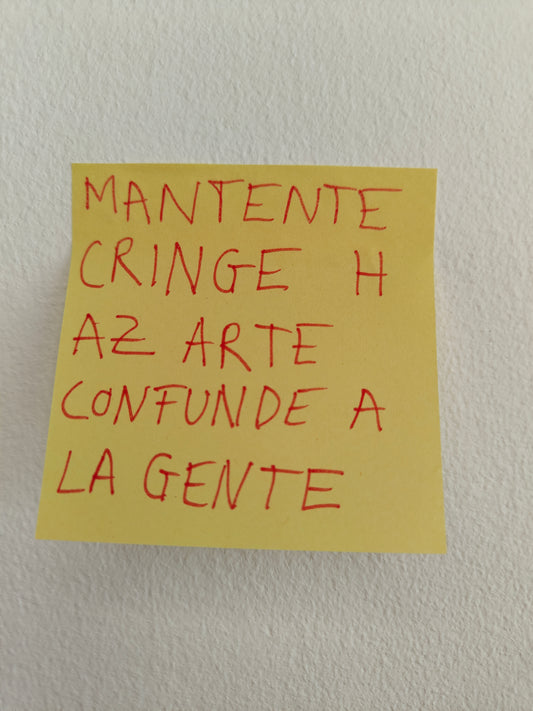 MANTENTE
CRINGE H
AZ ARTE
CONFUNDE A
LA GENTE